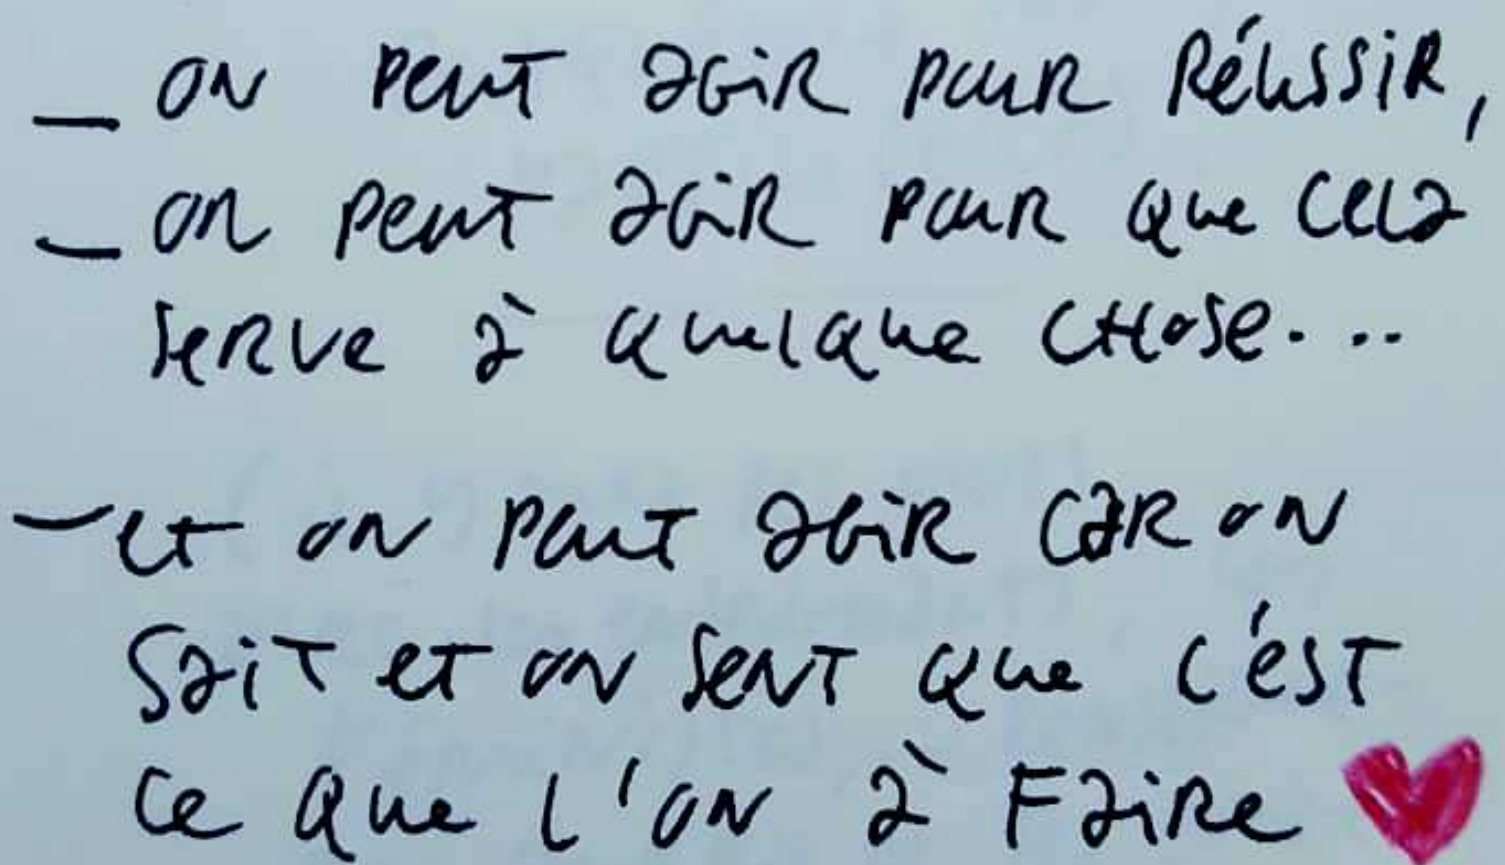 _ ON PEUT AGIR POUR RÉUSSIR,
_ ON PEUT AGIR POUR QUE CELA
SERVE À QUELQUE CHOSE...
_ ET ON PEUT AGIR CAR ON
SAIT ET ON SENT QUE C'EST
CE QUE L'ON À FAIRE